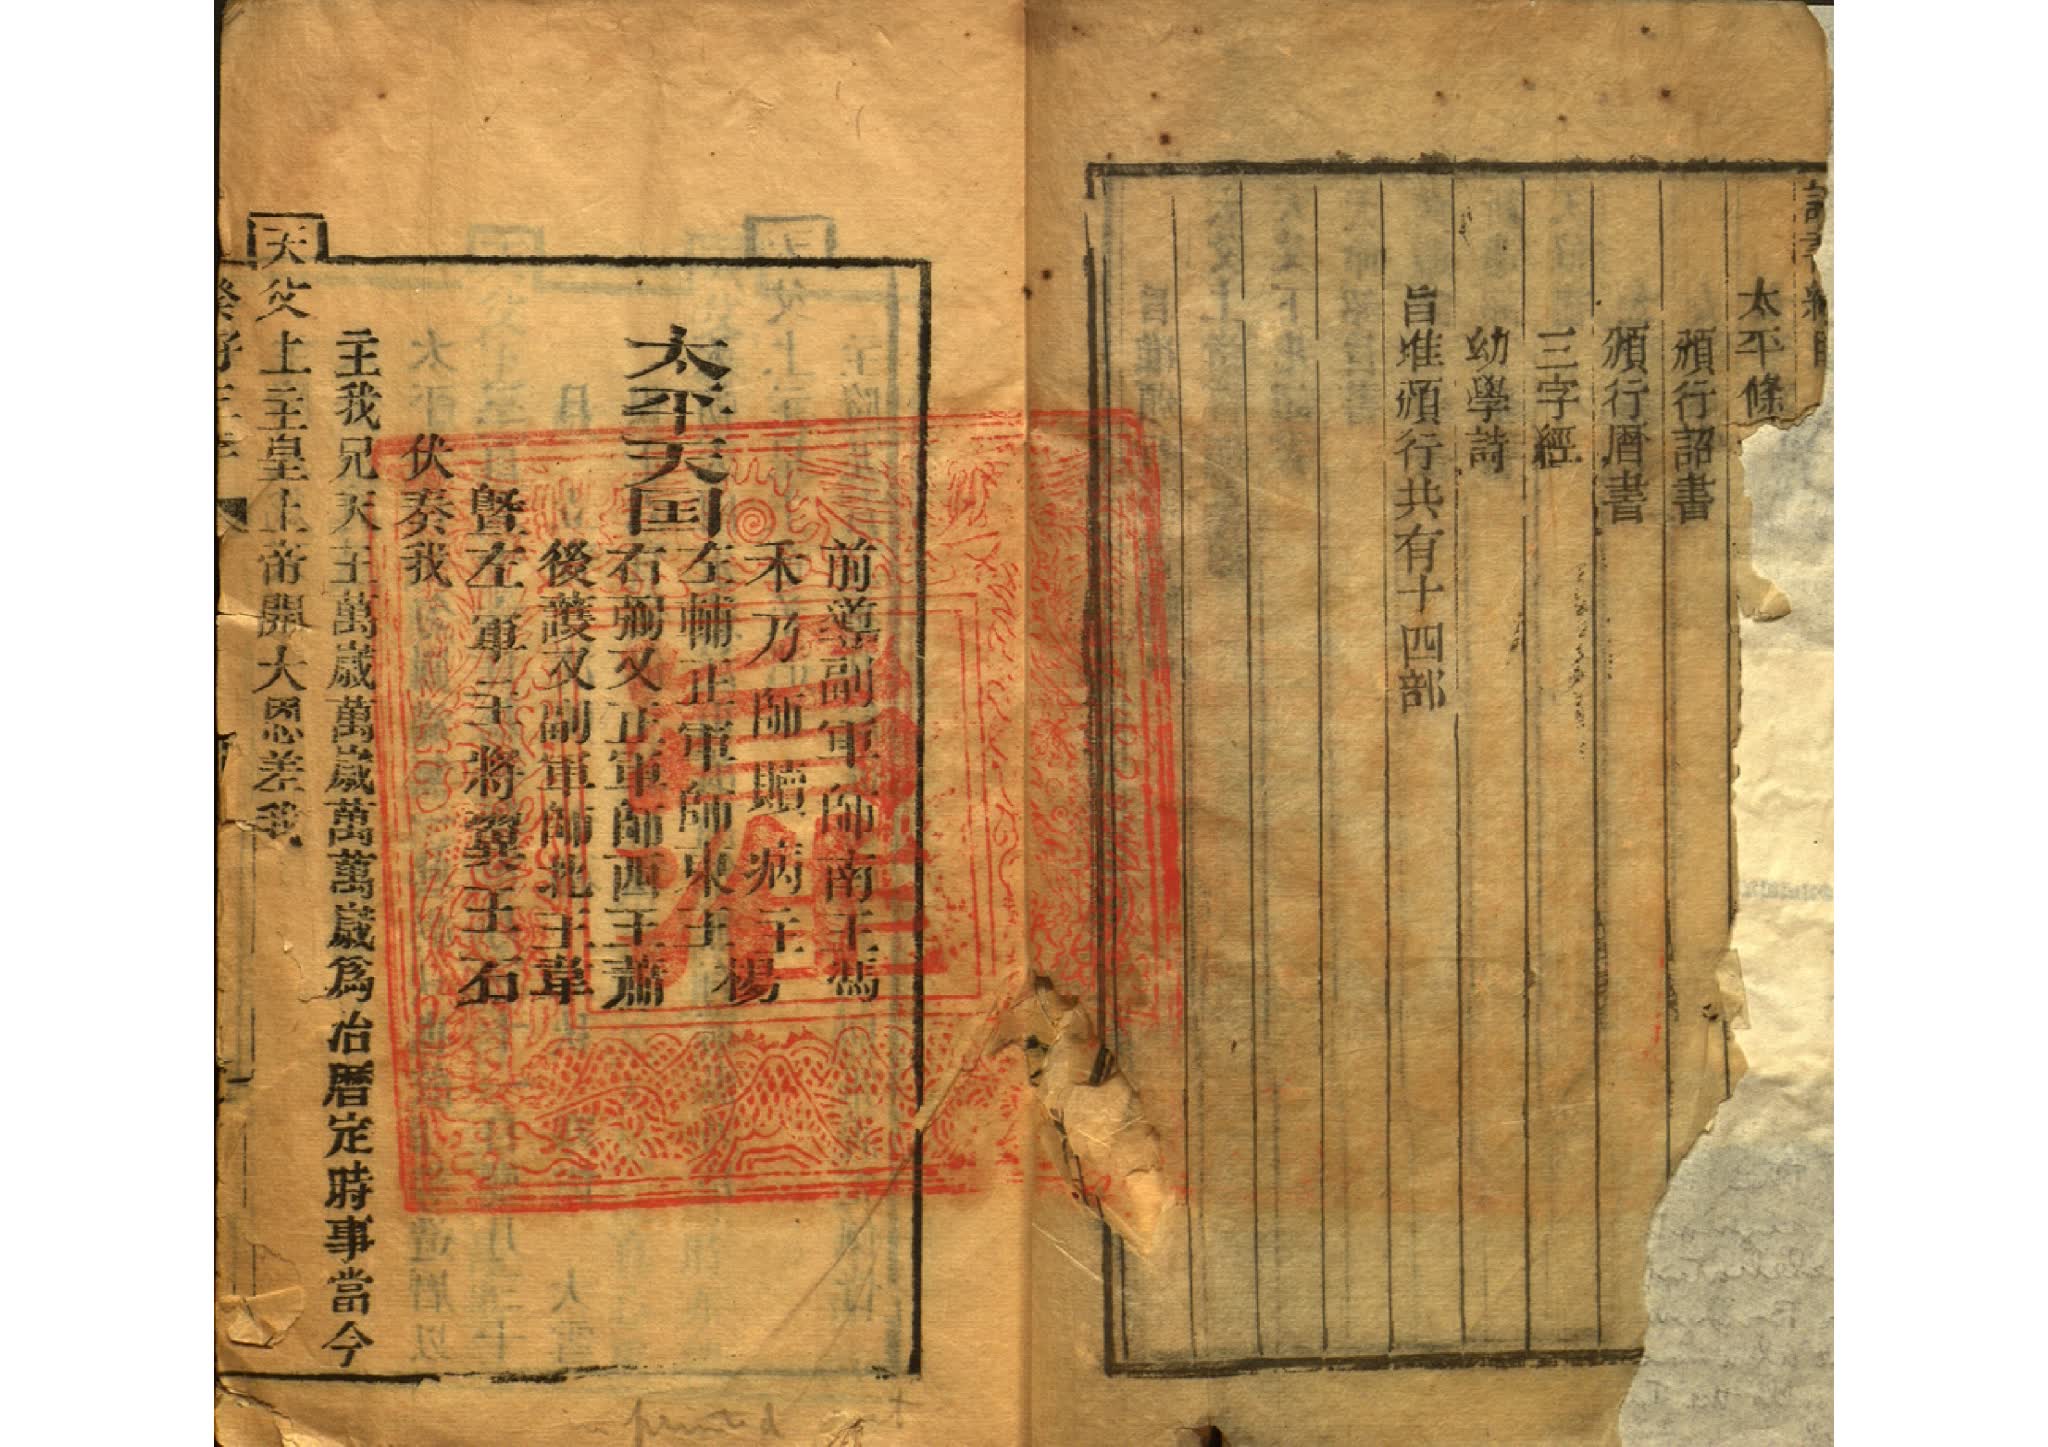 太平條
頒行詔書
頒行曆書
三字經
幼學詩
旨准頒行共有十四部
前導副軍師南王馮
禾乃師贖病主
左輔正軍師東王楊
太平天囯
右弼又正軍師西王蕭
後護又副軍師北王韋
曁左軍主將翼王石
伏奏我
主我兄天王萬歲萬歲萬萬歲爲治曆定時事當今
天父上主皇上帝開大恩差我
旨准
printed